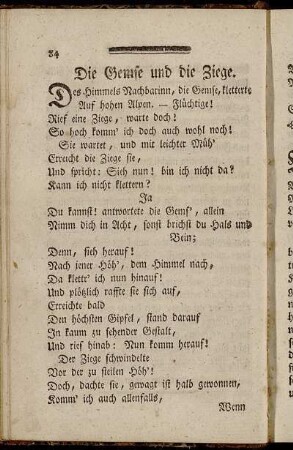 34
Die Gemse und die Ziege.
Des Himmels Nachbarinn, die Gemse, kletterte
Auf hohen Alpen. — Flüchtige!
Rief eine Ziege, warte doch!
So hoch komm' ich doch auch wohl noch!
Sie wartet, und mit leichter Müh'
Erreicht die Ziege sie,
Und spricht: Sieh nun! bin ich nicht da?
Kann ich nicht klettern?
Ja
Du kannst! antwortete die Gems', allein
Nimm dich in Acht, sonst brichst du Hals und
Bein;
Denn, sieh herauf!
Nach jener Höh', dem Himmel nach,
Da klett' ich nun hinauf!
Und plötzlich raffte sie sich auf,
Erreichte bald
Den höchsten Gipfel, stand darauf
In kaum zu sehender Gestalt,
Und rief hinab: Nun komm herauf!
Der Ziege schwindelte
Vor der zu steilen Höh'!
Doch, dachte sie, gewagt ist halb gewonnen,
Komm' ich auch allenfalls,
Wenn